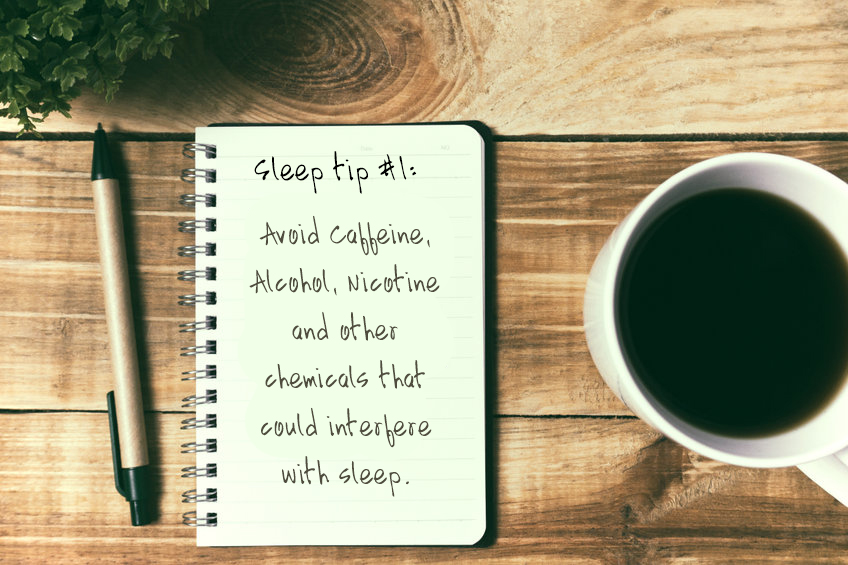 Sleep tip #1:
Avoid Caffeine,
Alcohol, Nicotine
and other
chemicals that
could interfere
with sleep.